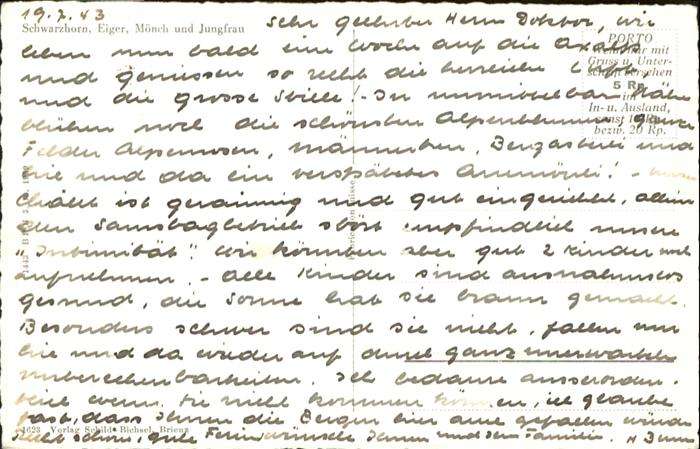 19.7.43
Schwarzhorn, Eiger, Mönch und Jungfrau
Sehr geehrter Herr Doktor, wir
leben nun bald eine Woche auf die
und geniessen so recht die herrliche Luft
und die grosse Stille! In unmittelbarer Nähe
blühen noch die schönsten Alpenblumen, ganze
Felder Alpenrosen, Männertreu, Bergastern und
hie und da ein verspätetes Anemönli! - Unser
Châlet ist geräumig und gut eingerichtet, allein
den Samstagbetrieb stört empfindlich unsere
"Intimität". Wir könnten aber gut 2 Kinder noch
aufnehmen. - Alle Kinder sind ausnahmslos
gesund, die Sonne hat sie braun gemacht.
Besonders schwer sind sie nicht, fallen nur
hie und da wieder auf durch ganz unerwartete
Unberechenbarkeiten. Ich bedaure ausserordent-
lich wenn Sie nicht kommen können, ich glaube
fast, dass Ihnen die Berge hier oben gefallen würden
Recht schöne, gute Ferienwünsche Ihnen und der Familie.
PORTO
mit
Gruss u. Unter-
schrift versehen
5 Rp.
In- u. Ausland,
sonst 10 Rp.
bezw. 20 Rp.
1623 Verlag Schild-Bichsel, Brienz